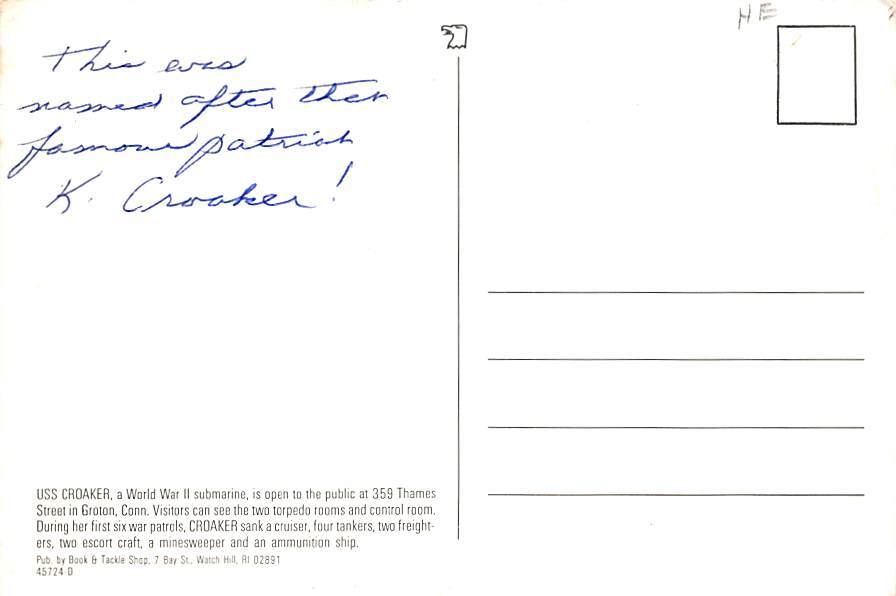 HE
This was
named after that
famous patriot
K. Croaker!
USS CROAKER, a World War II submarine, is open to the public at 359 Thames
Street in Groton, Conn. Visitors can see the two torpedo rooms and control room.
During her first six war patrols, CROAKER sank a cruiser, four tankers, two freight-
ers, two escort craft, a minesweeper and an ammunition ship.
Pub. by Book & Tackle Shop, 7 Bay St., Watch Hill, RI 02891
45724-D